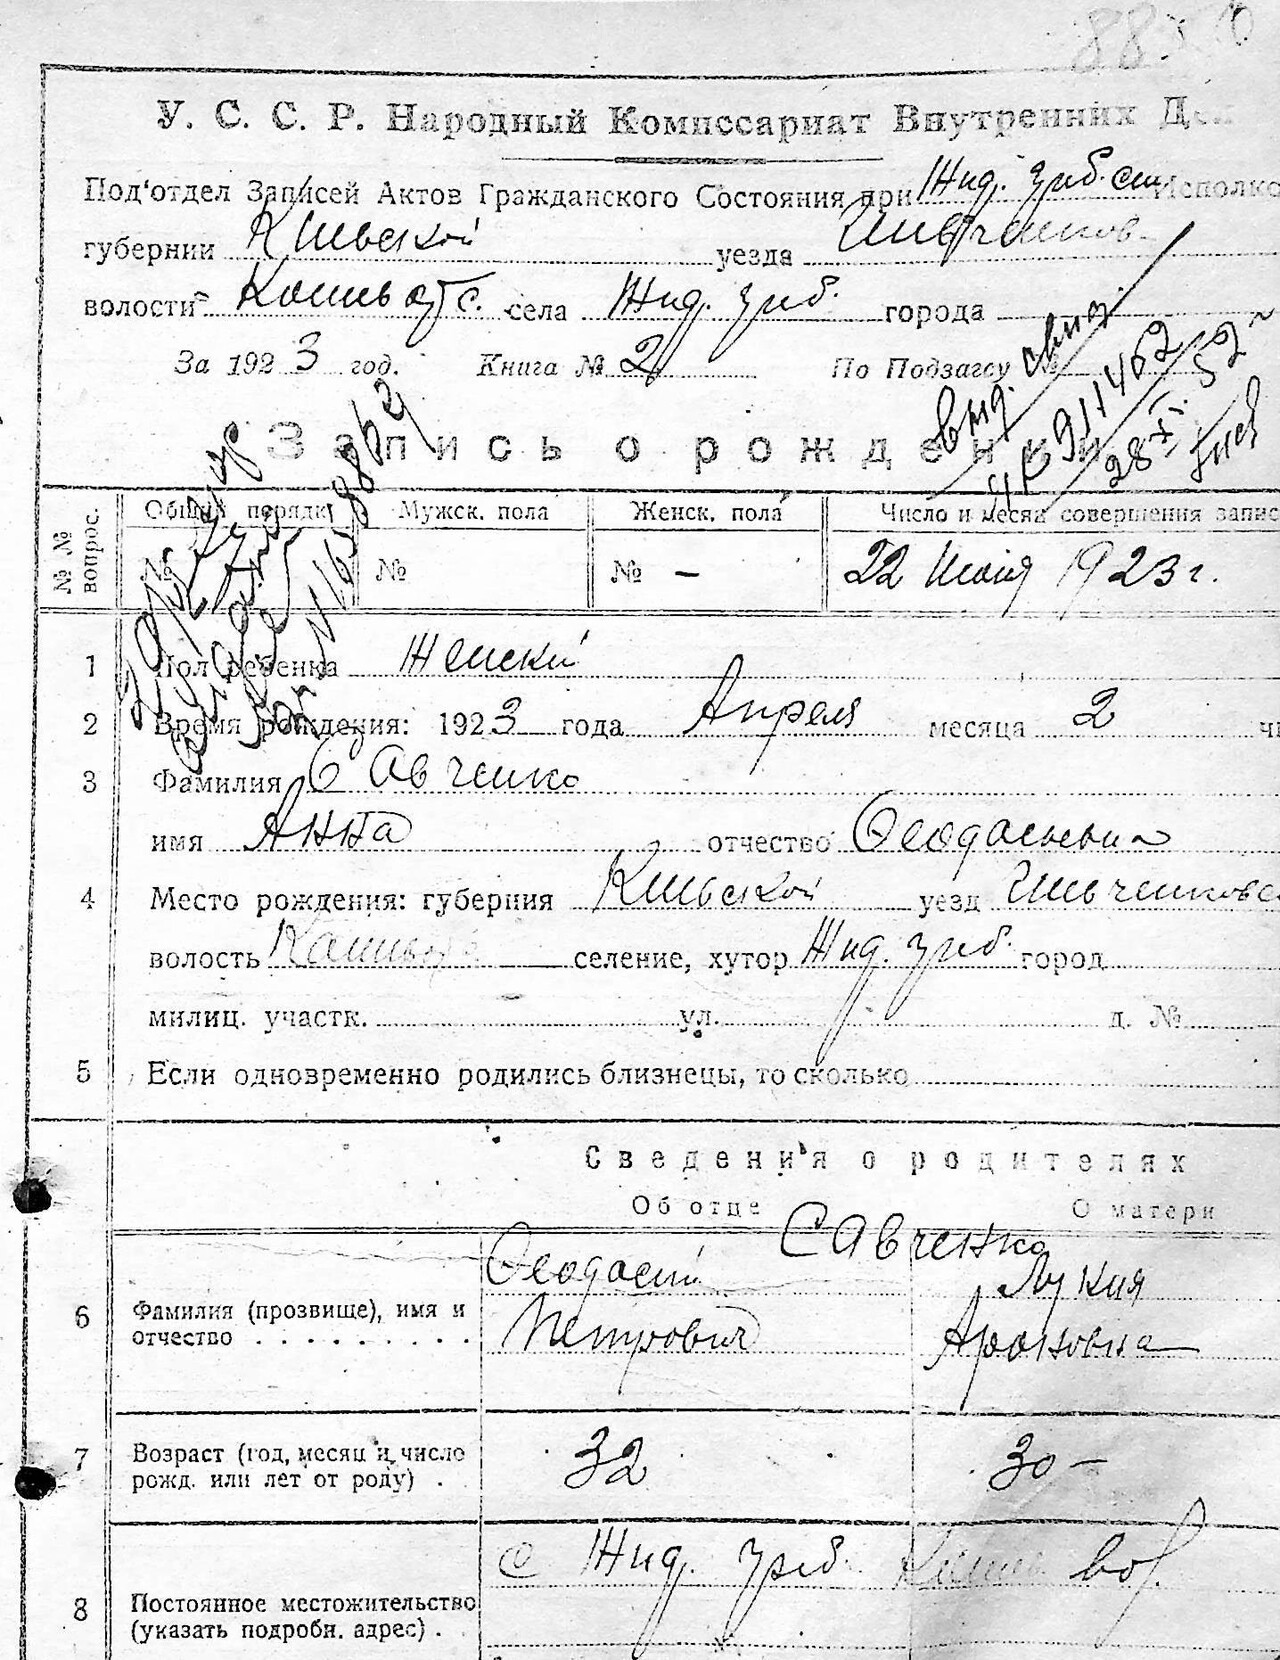 У. С. С. Р. Народный Комиссариат Внутренних
Под'отдел Записей Актов Гражданского Состояния при Жид. Греб. Исполко
губернии Киевской уезда
волости села Жид. Греб. города
За 1923 год. Книга № 2 По Подзагсу №
выд. свид.
911462
28 XI. 52
Запись о рождении
№ № вопрос. Общий порядк. Мужск. пола Женск. пола Число и месяц совершения запис
№ № № — 22 Июня 1923 г.
1 Пол ребенка Женский
2 Время рождения: 1923 года Апреля месяца 2 чи
3 Фамилия Савченко
имя Анна отчество Феодосьевна
4 Место рождения: губерния Киевской уезд
волость селение, хутор Жид. Греб. город
милиц. участк. ул. д. №
5 Если одновременно родились близнецы, то сколько
Сведения о родителях
Об отце О матери
Савченко
Феодосий Лукия
6 Фамилия (прозвище), имя и
отчество Петрович Ароновна
7 Возраст (год, месяц и число
рожд. или лет от роду) 32 30 –
с Жид. Греб. вол.
8 Постоянное местожительство
(указать подробн. адрес)